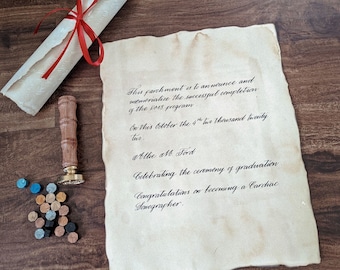 This parchment is to announce and
memorialize the successful completion
of the program
On this October the 6th two thousand twenty
two
Allie M. Ford
Celebrating the ceremony of graduation
Congratulations on becoming a Cardiac
Sonographer.